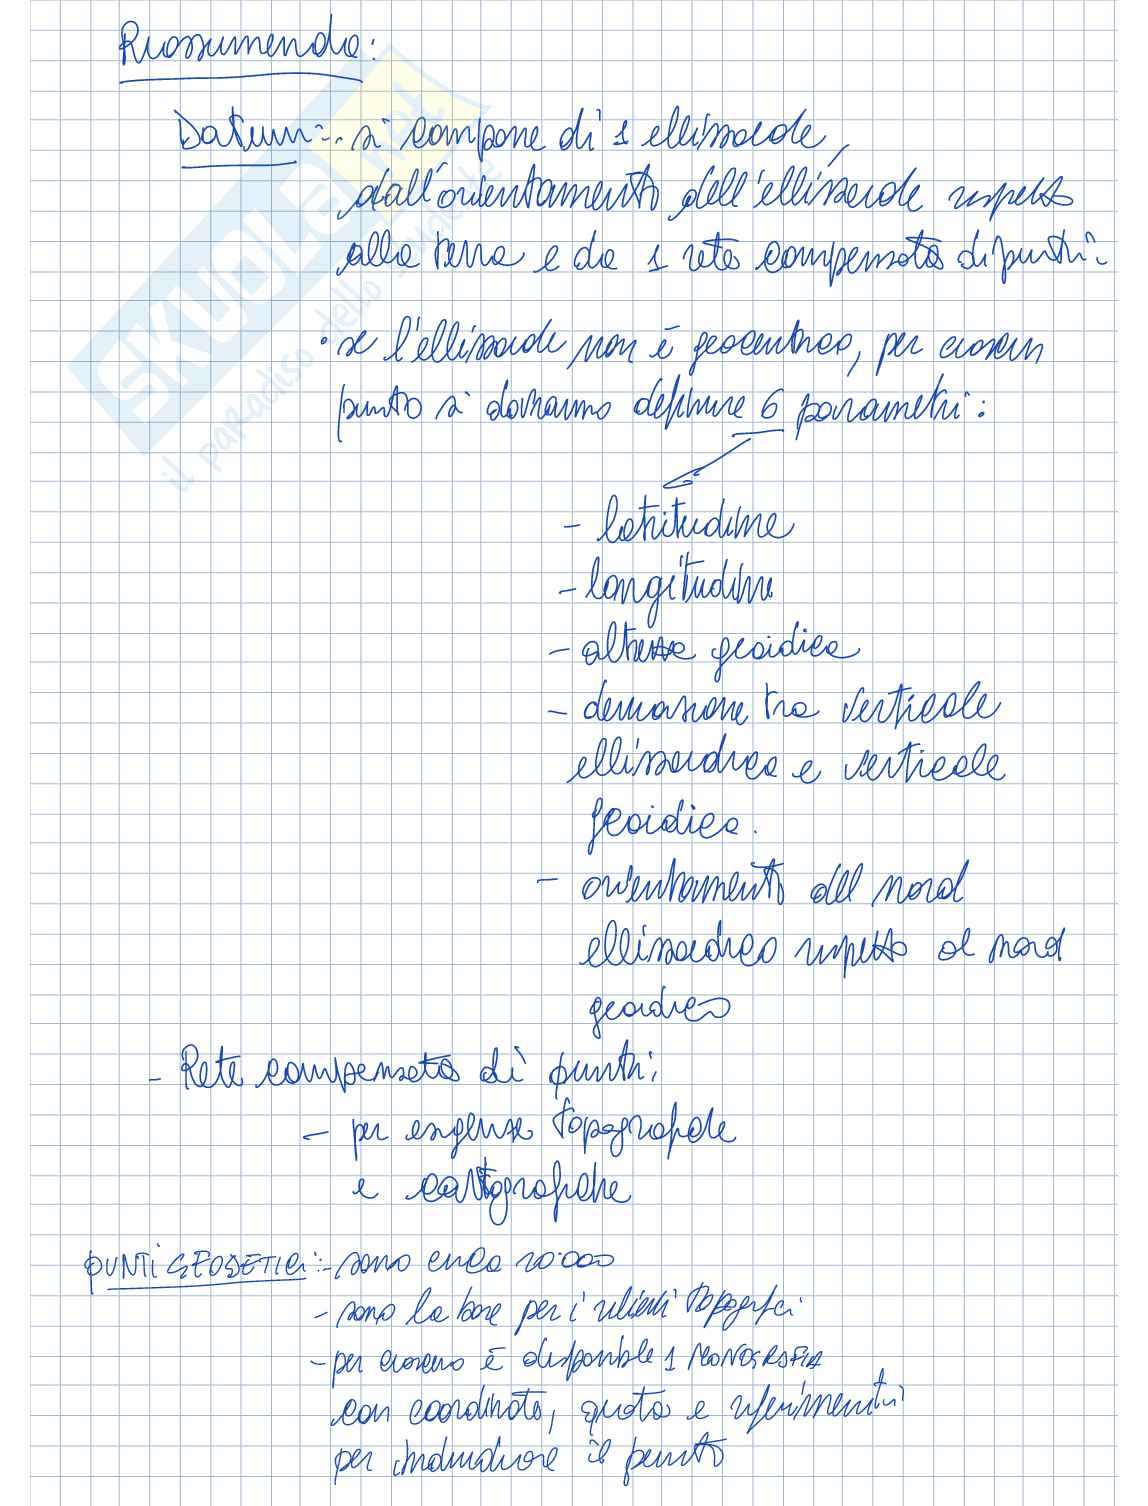 Riassumendo:
Datum:. si compone di 1 ellissoide,
dall'orientamento dell'ellissoide rispetto
alla terra e da 1 rete compensata di punti.
• se l'ellissoide non è geocentrico, per ciascun
punto si dovranno definire 6 parametri:
- latitudine
- longitudine
- altezza geoidica
- deviazione tra verticale
ellissoidica e verticale
geoidica.
- orientamento del nord
ellissoidico rispetto al nord
geoidico
- Rete compensata di punti:
- per esigenze topografiche
e cartografiche
PUNTI GEODETICI:- sono circa 20.000
- sono la base per i rilievi topografici
- per ciascuno è disponibile 1 MONOGRAFIA
con coordinate, quota e riferimenti
per individuare il punto
SKUOLA.net
il paradiso dello studente